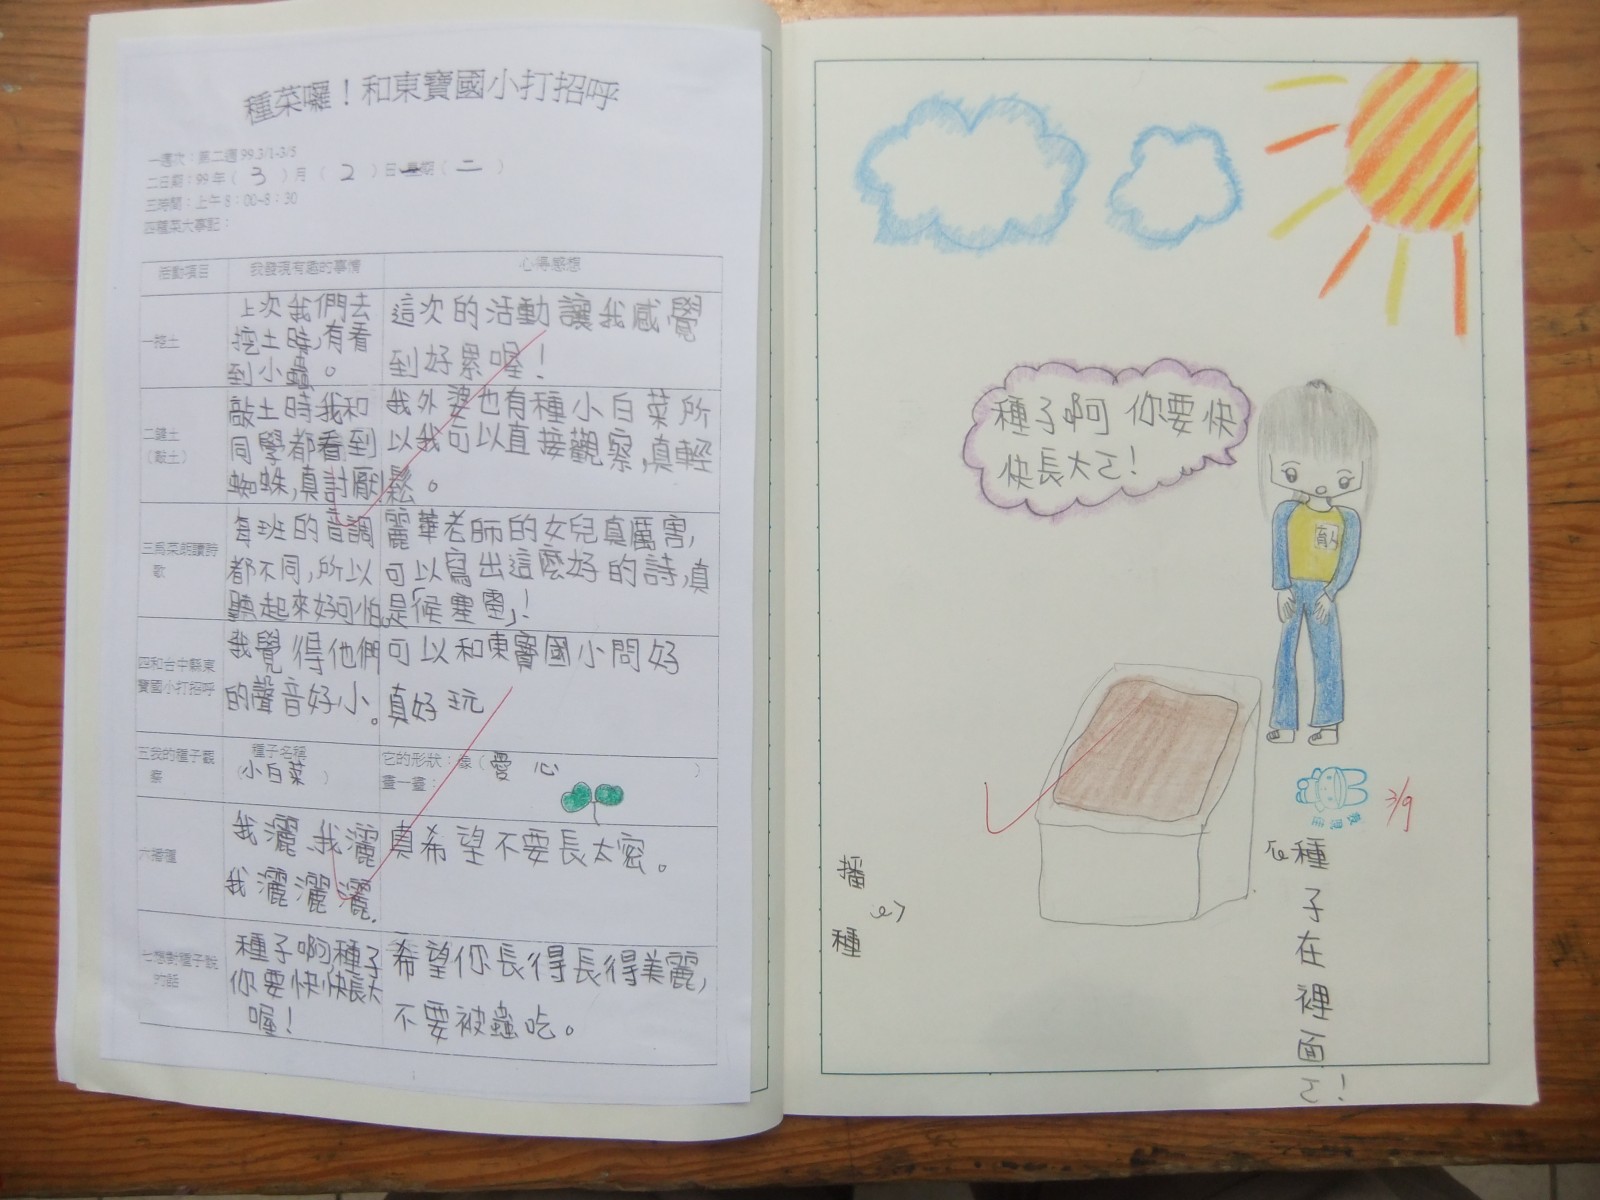 種菜囉！和東寶國小打招呼
一週次：第二週 99.3/1-3/5
二日期：99年（ 3 ）月（ 2 ）日星期（ 二 ）
三時間：上午8：00~8：30
四種菜大事記：
活動項目 我發現有趣的事情 心得感想
一挖土
上次我們去
挖土時,有看
到小蟲。
這次的活動讓我感覺
到好累喔！
二鏟土
（敲土）
敲土時我和
同學都看到
蜘蛛,真討厭
我外婆也有種小白菜所
以我可以直接觀察,真輕
鬆。
三為菜朗讀詩
歌
每班的音調
都不同,所以
聽起來好可怕。
麗華老師的女兒真厲害,
可以寫出這麼好的詩,真
是「候塞雷」!
四和台中縣東
寶國小打招呼
我覺得他們
的聲音好小。
可以和東寶國小問好
真好玩
三我的種子觀
察
種子名稱
（小白菜 ）
它的形狀：像（愛心 ）
畫一畫：
六播種
我灑,我灑
我灑灑灑.
真希望不要長太密。
七想對種子說
的話
種子啊,種子
你要快快長大
喔！
希望你長得長得美麗,
不要被蟲吃。
種子啊 你要快
快長大ㄛ!
3/9
播
種
種子在裡面ㄛ!